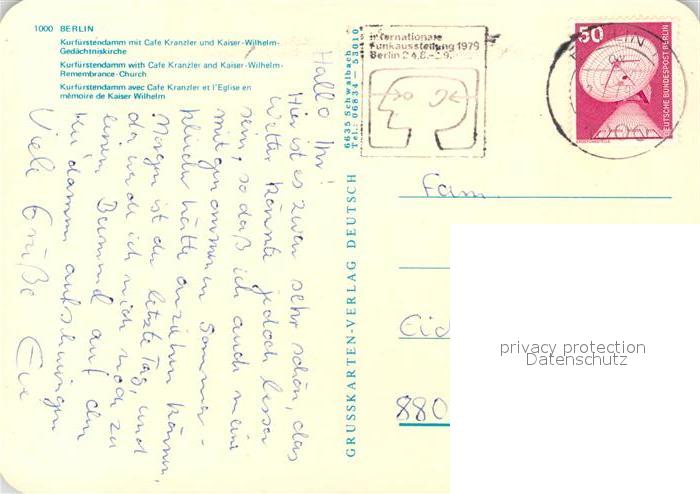 1000 BERLIN
Kurfürstendamm mit Cafe Kranzler und Kaiser-Wilhelm-
Gedächtniskirche
Kurfürstendamm with Cafe Kranzler and Kaiser-Wilhelm-
Remembrance-Church
Kurfürstendamm avec Cafe Kranzler et l'Eglise en
mémoire de Kaiser Wilhelm
Hallo Ihr!
Hier ist es zwar sehr schön, das
Wetter könnte jedoch besser
sein, so daß ich auch meine
mitgenommenen Sommer-
kleider hätte anziehen können.
Morgen ist der letzte Tag, und
da werde ich mich noch zu
einem Bummel auf den
Ku'damm aufschwingen
Viele Grüße Eve
GRUSSKARTEN-VERLAG DEUTSCH
6635 Schwalbach
Tel.: 06834 - 53010
Internationale
Funkausstellung 1979
Berlin 24.8.-2.9.
BERLIN
50
DEUTSCHE BUNDESPOST BERLIN
1000
Fam.
880
privacy protection
Datenschutz